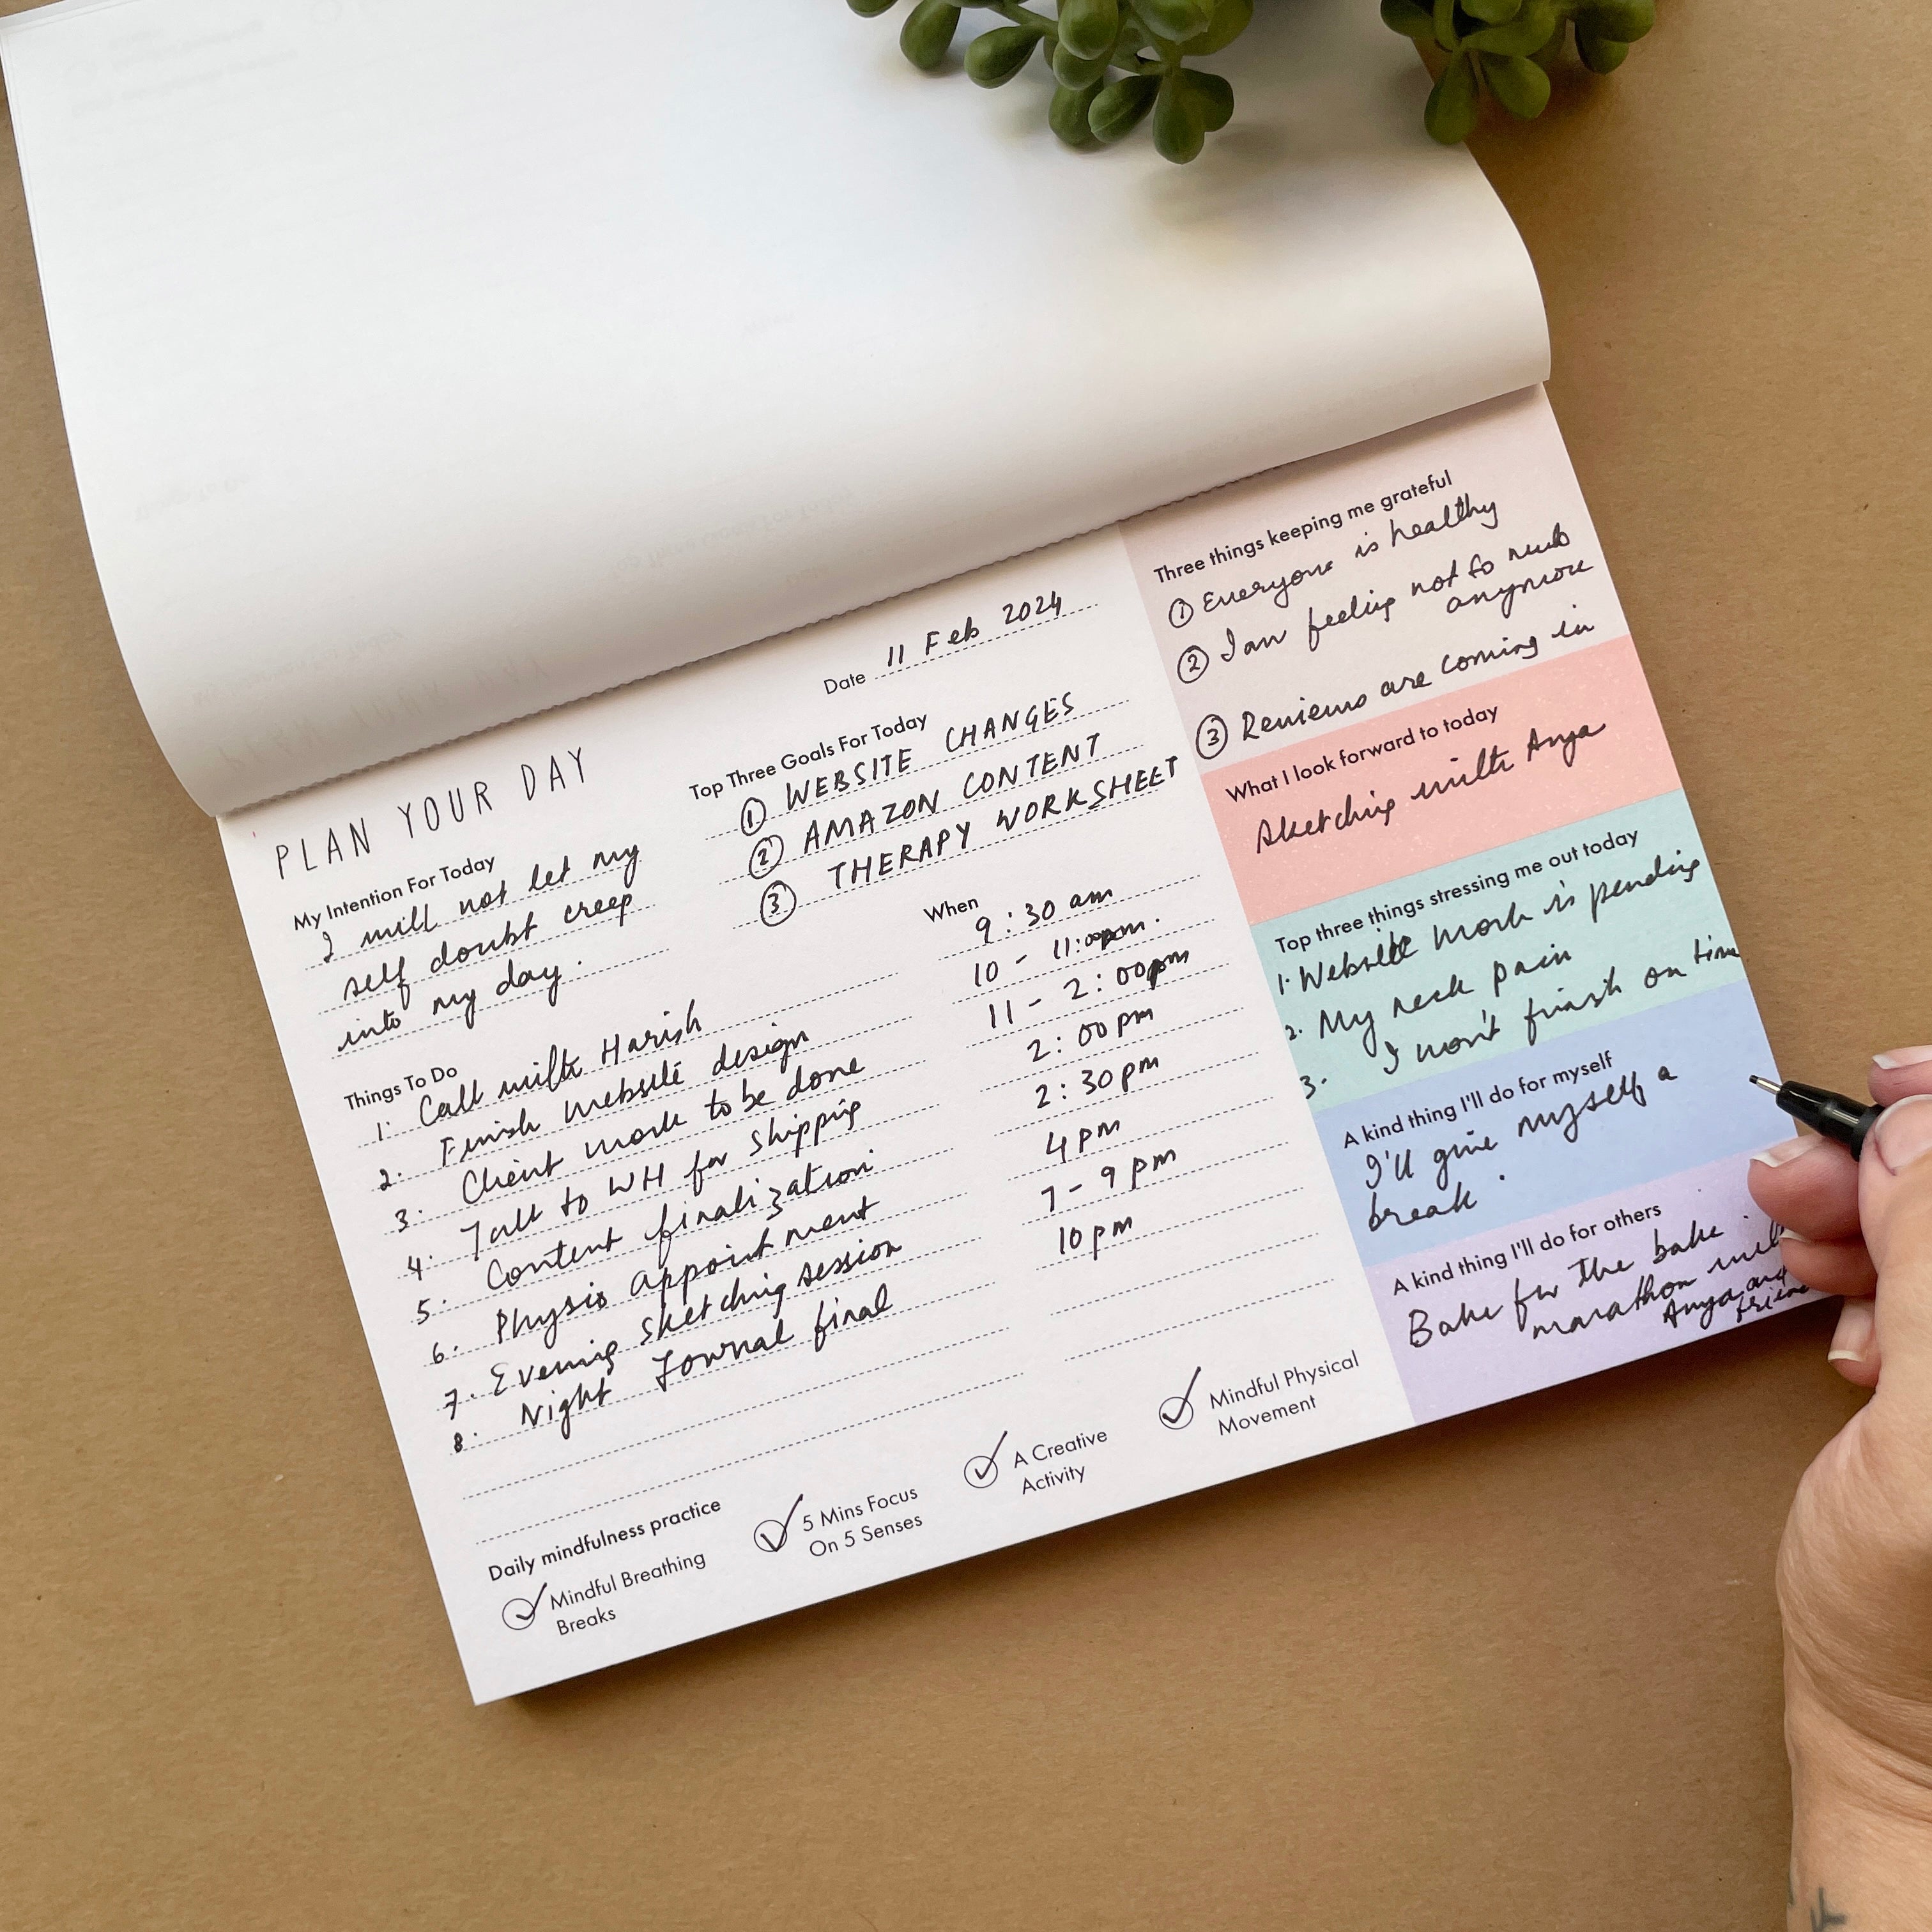 PLAN YOUR DAY
Date 11 Feb 2024
My Intention For Today
I will not let my
self doubt creep
into my day.
Top Three Goals For Today
① WEBSITE CHANGES
② AMAZON CONTENT
③ THERAPY WORKSHEET
Things To Do
1. Call with Harish
2. Finish website design
3. Client work to be done
4. Talk to WH for shipping
5. Content finalization
6. Physio appointment
7. Evening sketching session
8. Night Journal final
When
9:30 am
10 - 11:00pm.
11 - 2:00pm
2:00 pm
2:30 pm
4 pm
7 - 9 pm
10 pm
Daily mindfulness practice
Mindful Breathing
Breaks
5 Mins Focus
On 5 Senses
A Creative
Activity
Mindful Physical
Movement
Three things keeping me grateful
① Everyone is healthy
② I am feeling not so
anymore
③ Reviews are coming in
What I look forward to today
Sketching with Anya
Top three things stressing me out today
1. Website work is pending
2. My neck pain
3. I won't finish on time
A kind thing I'll do for myself
I'll give myself a
break.
A kind thing I'll do for others
Bake for the bake
marathon with
Anya and